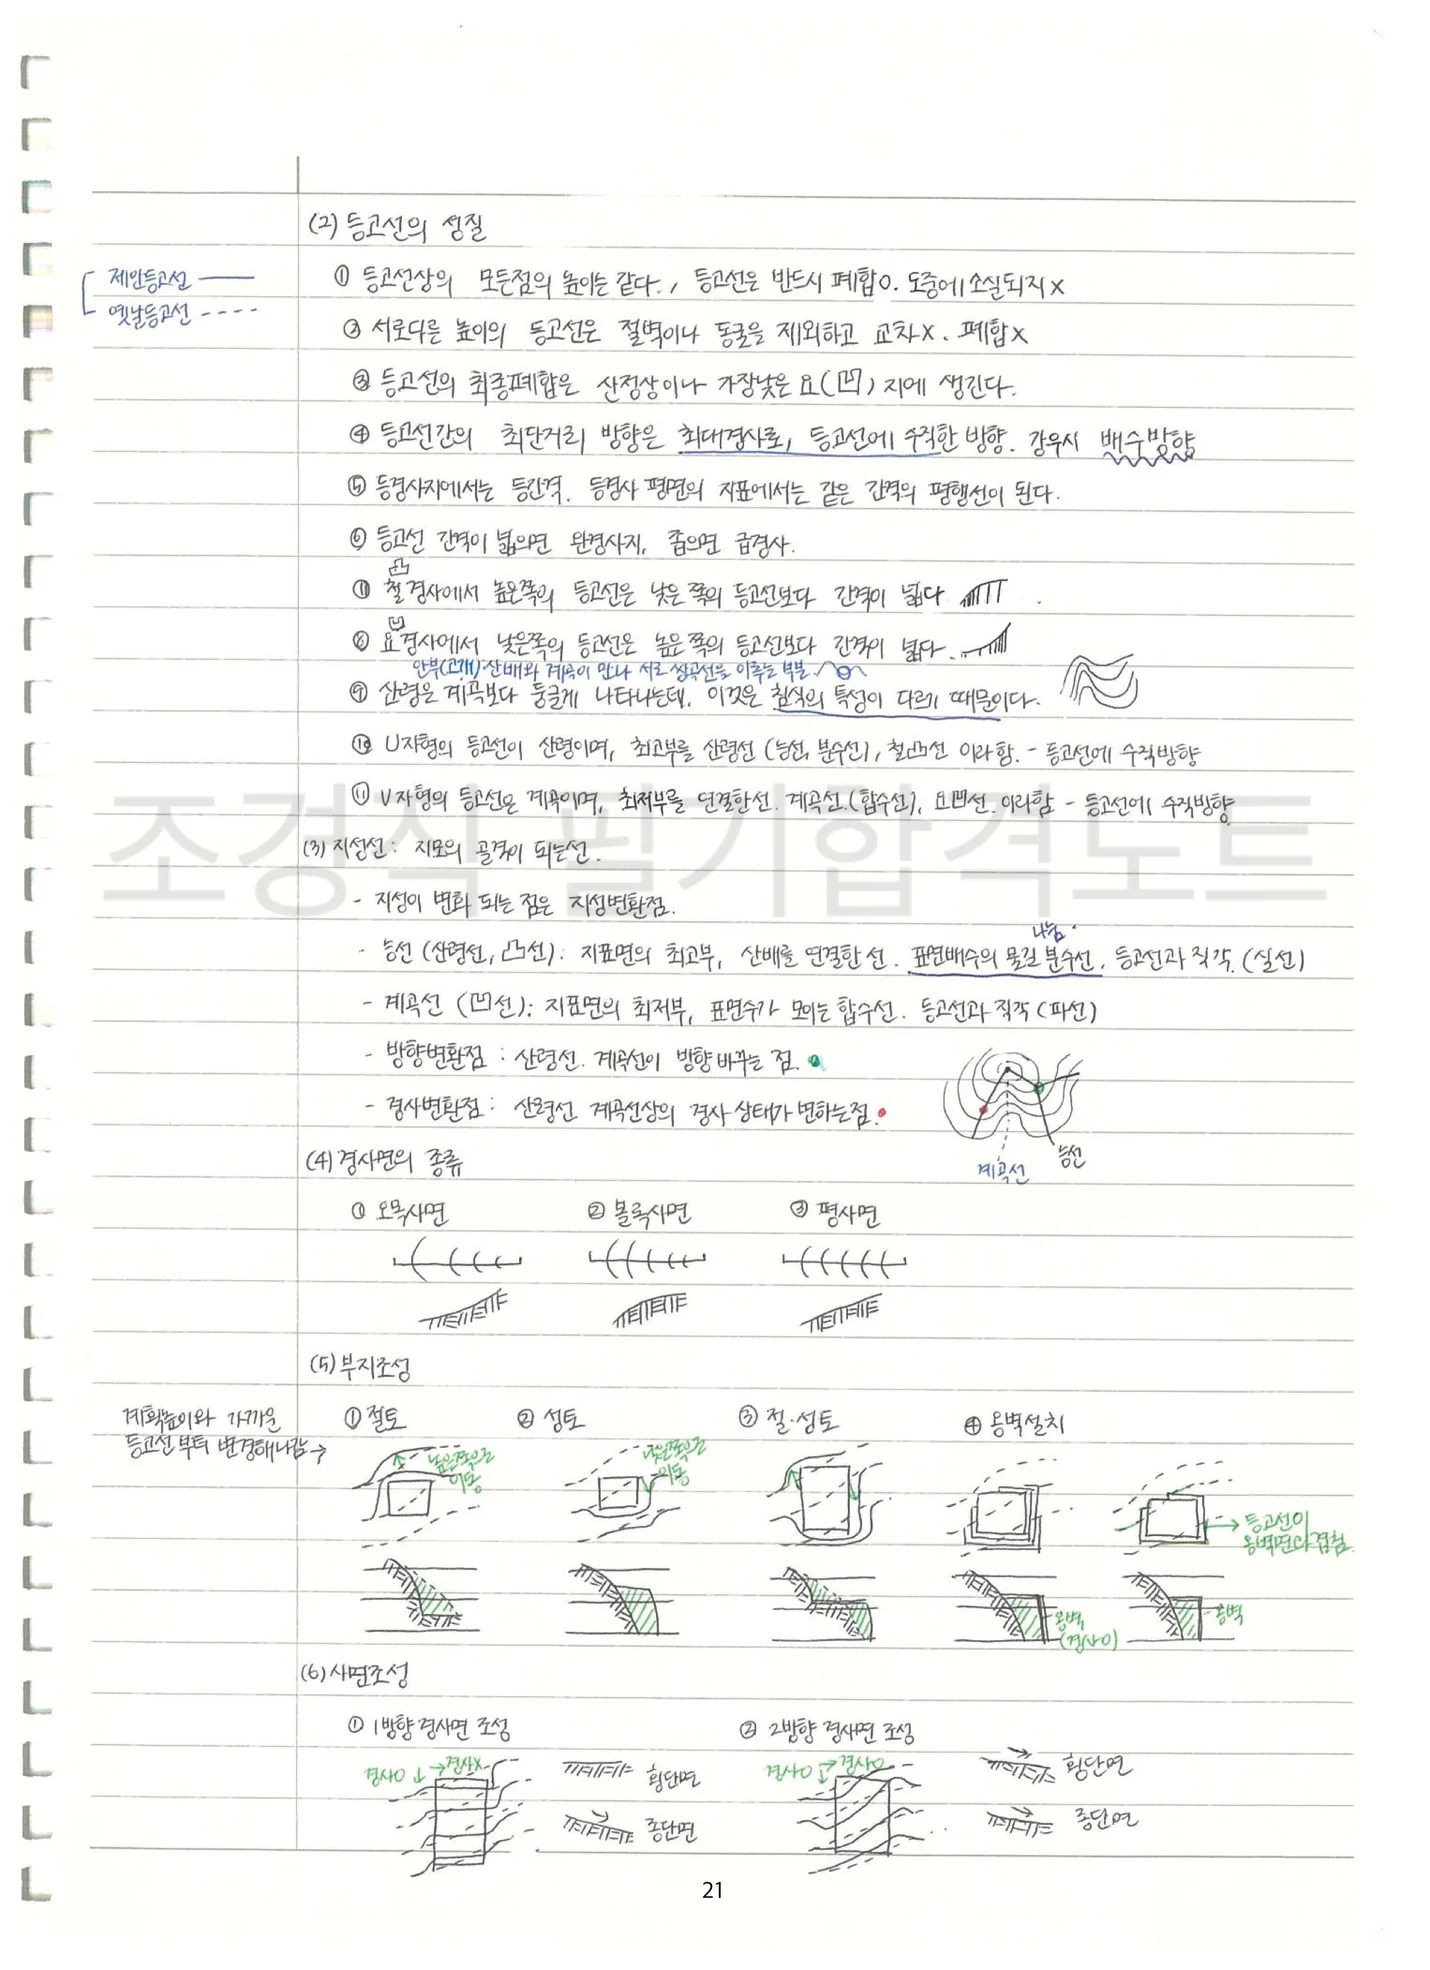 (2) 등고선의 성질
제안등고선 ——
옛날등고선 - - - -
① 등고선상의 모든점의 높이는 같다., 등고선은 반드시 폐합O. 도중에 소실되지 x
② 서로다른 높이의 등고선은 절벽이나 동굴을 제외하고 교차x. 폐합x
③ 등고선의 최종폐합은 산정상이나 가장낮은 요(凹)지에 생긴다.
④ 등고선간의 최단거리 방향은 최대경사로, 등고선에 수직한 방향. 강우시 배수방향
⑤ 등경사지에서는 등간격. 등경사 평면의 지표에서는 같은 간격의 평행선이 된다.
⑥ 등고선 간격이 넓으면 완경사지, 좁으면 급경사.
凸
⑦ 철경사에서 높은쪽의 등고선은 낮은 쪽의 등고선보다 간격이 넓다
凹
⑧ 요경사에서 낮은쪽의 등고선은 높은 쪽의 등고선보다 간격이 넓다.
안부(고개): 산배와 계곡이 만나 서로 쌍곡선을 이루는 부분.
⑨ 산령은 계곡보다 둥글게 나타나는데, 이것은 침식의 특성이 다르기 때문이다.
⑩ U자형의 등고선이 산령이며, 최고부를 산령선 (능선, 분수선), 철凸선 이라함. - 등고선에 수직방향
⑪ V자형의 등고선은 계곡이며, 최저부를 연결한선. 계곡선.(합수선), 요凹선. 이라함 - 등고선에 수직방향
조경직 필기합격노트
(3) 지성선: 지모의 골격이 되는선.
- 지성이 변화 되는 점은 지성변환점.
나눔.
- 능선 (산령선, 凸선): 지표면의 최고부, 산배를 연결한 선. 표면배수의 물길 분수선. 등고선과 직각. (실선)
- 계곡선 (凹선): 지표면의 최저부, 표면수가 모이는 합수선. 등고선과 직각 (파선)
- 방향변환점 : 산령선. 계곡선이 방향 바꾸는 점.
- 경사변환점 : 산령선 계곡선상의 경사 상태가 변하는점.
능선
계곡선
(4) 경사면의 종류
① 오목사면 ② 볼록사면 ③ 평사면
(5) 부지조성
계획높이와 가까운
등고선부터 변경해나감 →
① 절토 ② 성토 ③ 절·성토 ④ 옹벽설치
높은쪽으로
이동
낮은쪽으로
이동
등고선이
옹벽면과 겹침
옹벽
(경사O)
옹벽
(6) 사면조성
① 1방향 경사면 조성 ② 2방향 경사면 조성
경사O ↑ →경사X
횡단면
종단면
경사O ↑ →경사O
횡단면
종단면
21